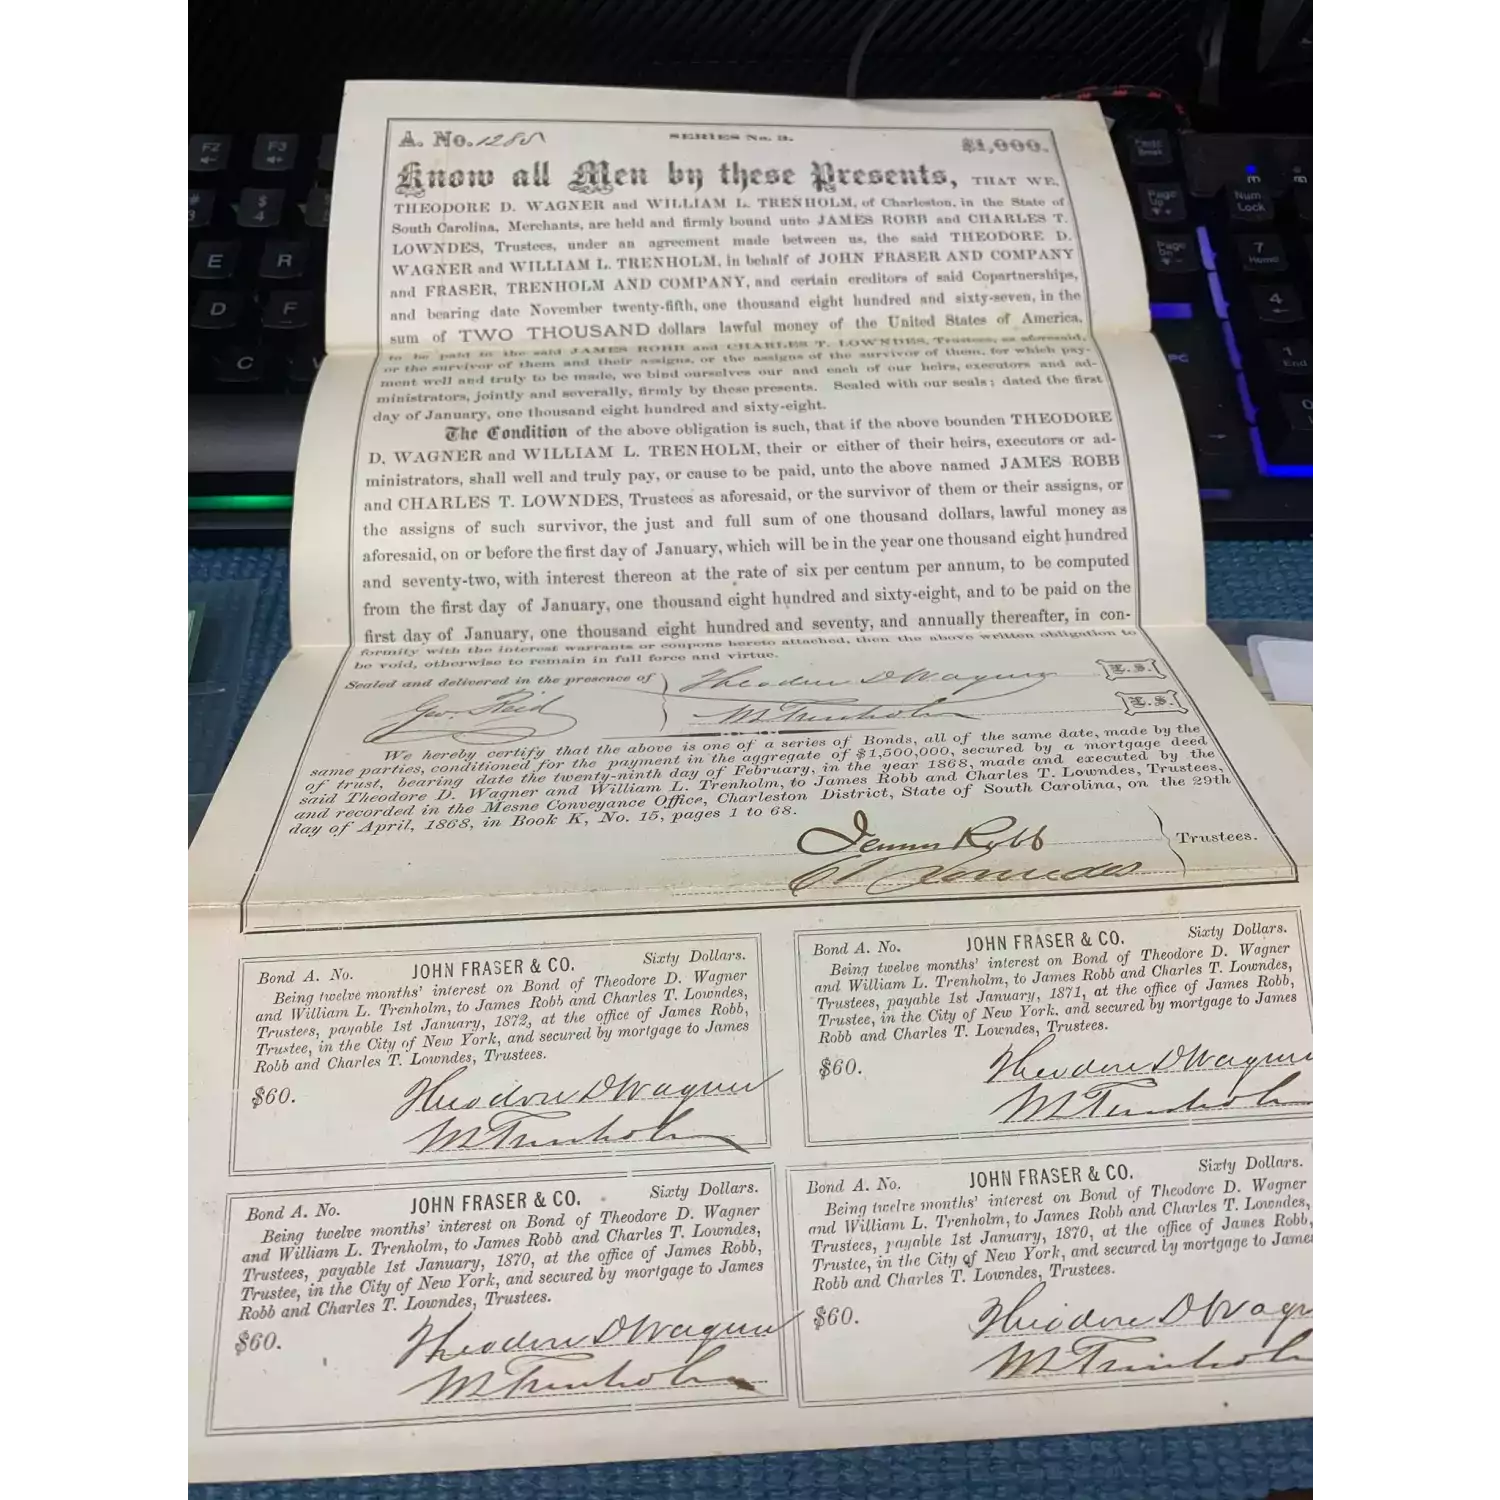 A. No. 1285 SERIES No. 3. $1,000.
Know all Men by these Presents, THAT WE,
THEODORE D. WAGNER and WILLIAM L. TRENHOLM, of Charleston, in the State of
South Carolina, Merchants, are held and firmly bound unto JAMES ROBB and CHARLES T.
LOWNDES, Trustees, under an agreement made between us, the said THEODORE D.
WAGNER and WILLIAM L. TRENHOLM, in behalf of JOHN FRASER AND COMPANY
and FRASER, TRENHOLM AND COMPANY, and certain creditors of said Copartnerships,
and bearing date November twenty-fifth, one thousand eight hundred and sixty-seven, in the
sum of TWO THOUSAND dollars lawful money of the United States of America,
to be paid to the said JAMES ROBB and CHARLES T. LOWNDES, Trustees, as aforesaid,
or the survivor of them and their assigns, or the assigns of the survivor of them, for which pay-
ment well and truly to be made, we bind ourselves our and each of our heirs, executors and ad-
ministrators, jointly and severally, firmly by these presents. Sealed with our seals; dated the first
day of January, one thousand eight hundred and sixty-eight.
The Condition of the above obligation is such, that if the above bounden THEODORE
D. WAGNER and WILLIAM L. TRENHOLM, their or either of their heirs, executors or ad-
ministrators, shall well and truly pay, or cause to be paid, unto the above named JAMES ROBB
and CHARLES T. LOWNDES, Trustees as aforesaid, or the survivor of them or their assigns, or
the assigns of such survivor, the just and full sum of one thousand dollars, lawful money as
aforesaid, on or before the first day of January, which will be in the year one thousand eight hundred
and seventy-two, with interest thereon at the rate of six per centum per annum, to be computed
from the first day of January, one thousand eight hundred and sixty-eight, and to be paid on the
first day of January, one thousand eight hundred and seventy, and annually thereafter, in con-
formity with the interest warrants or coupons hereto attached, then the above written obligation to
be void, otherwise to remain in full force and virtue.
Sealed and delivered in the presence of Theodore D Wagner L. S.
Geo. Reid Wm L Trenholm L. S.
We hereby certify that the above is one of a series of Bonds, all of the same date, made by the
same parties, conditioned for the payment in the aggregate of $1,500,000, secured by a mortgage deed
of trust, bearing date the twenty-ninth day of February, in the year 1868, made and executed by the
said Theodore D. Wagner and William L. Trenholm, to James Robb and Charles T. Lowndes, Trustees,
and recorded in the Mesne Conveyance Office, Charleston District, State of South Carolina, on the 29th
day of April, 1868, in Book K, No. 15, pages 1 to 68.
James Robb
C T Lowndes
Trustees.
Bond A. No. JOHN FRASER & CO. Sixty Dollars.
Being twelve months' interest on Bond of Theodore D. Wagner
and William L. Trenholm, to James Robb and Charles T. Lowndes,
Trustees, payable 1st January, 1872, at the office of James Robb,
Trustee, in the City of New York, and secured by mortgage to James
Robb and Charles T. Lowndes, Trustees.
$60. Theodore D Wagner
Wm L Trenholm
Bond A. No. JOHN FRASER & CO. Sixty Dollars.
Being twelve months' interest on Bond of Theodore D. Wagner
and William L. Trenholm, to James Robb and Charles T. Lowndes,
Trustees, payable 1st January, 1871, at the office of James Robb,
Trustee, in the City of New York. and secured by mortgage to James
Robb and Charles T. Lowndes, Trustees.
$60. Theodore D Wagner
Wm L Trenholm
Bond A. No. JOHN FRASER & CO. Sixty Dollars.
Being twelve months' interest on Bond of Theodore D. Wagner
and William L. Trenholm, to James Robb and Charles T. Lowndes,
Trustees, payable 1st January, 1870, at the office of James Robb,
Trustee, in the City of New York, and secured by mortgage to James
Robb and Charles T. Lowndes, Trustees.
$60. Theodore D Wagner
Wm L Trenholm
Bond A. No. JOHN FRASER & CO. Sixty Dollars.
Being twelve months' interest on Bond of Theodore D. Wagner
and William L. Trenholm, to James Robb and Charles T. Lowndes,
Trustees, payable 1st January, 1870, at the office of James Robb,
Trustee, in the City of New York, and secured by mortgage to James
Robb and Charles T. Lowndes, Trustees.
$60. Theodore D Wagn
Wm L Trenholm
F2
F3
$
4
E
R
D
F
C
V
Pause
Break
Page
Up
Page
Dn
Num
Lock
7
Home
4
1
End
0
PC